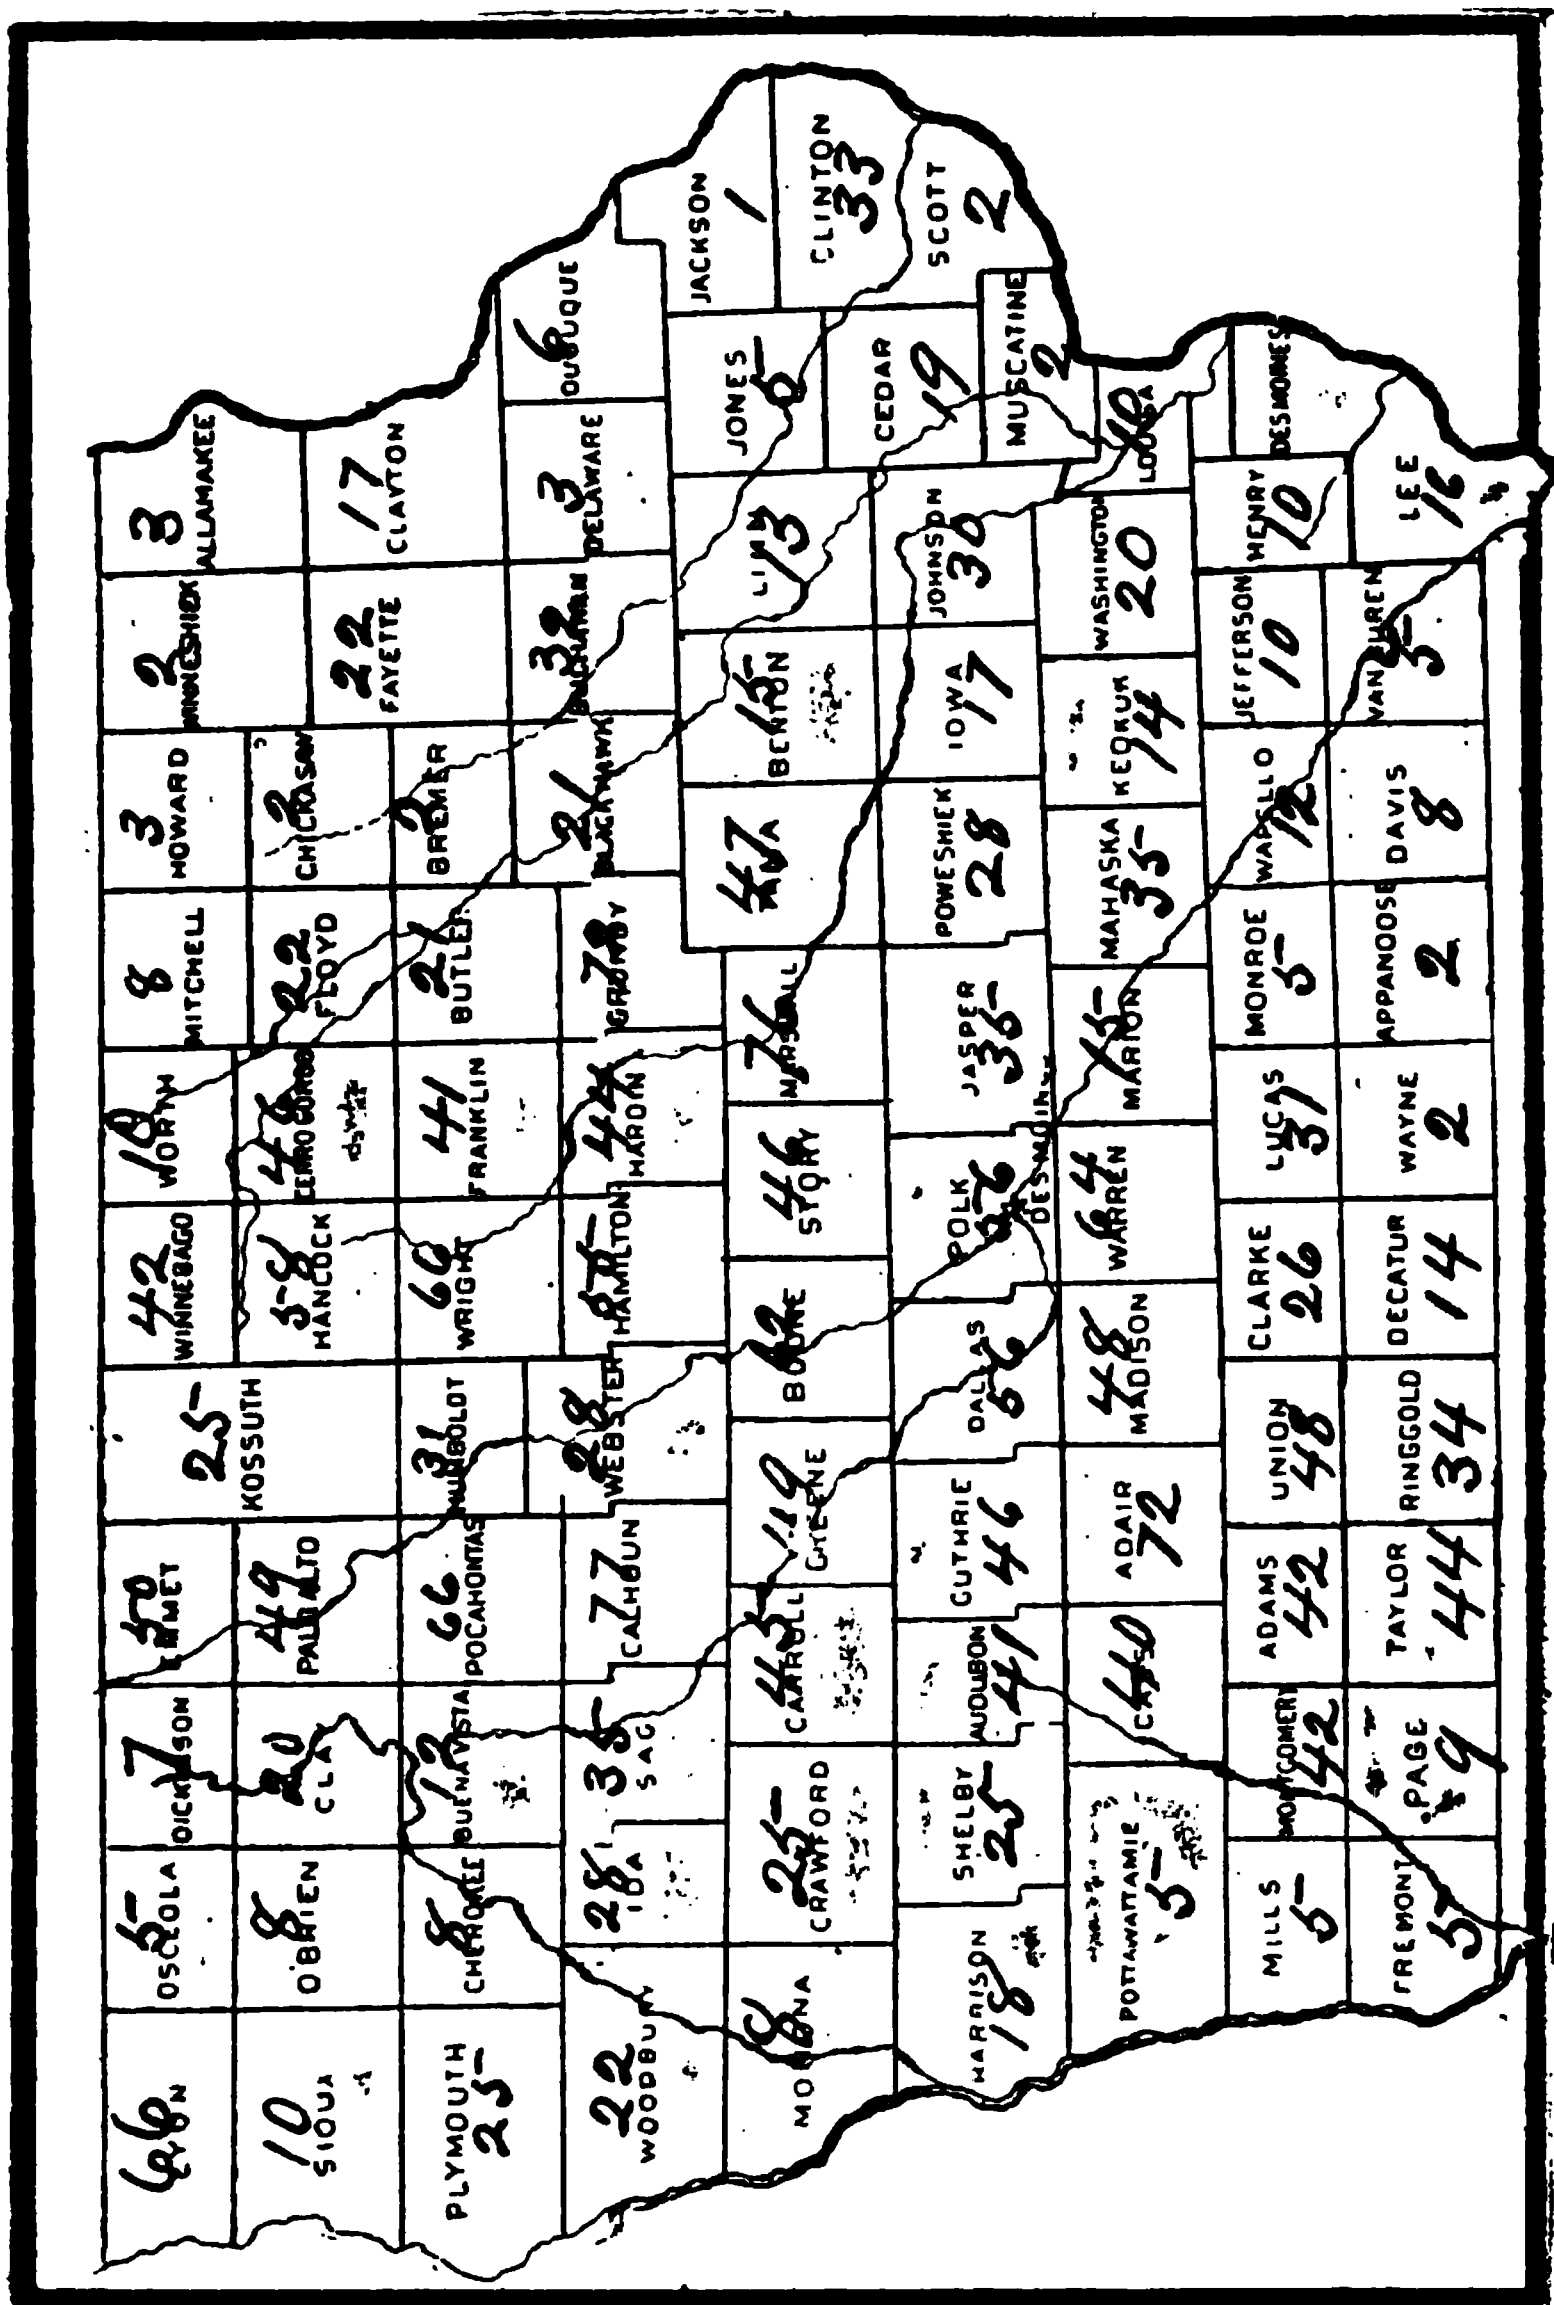 LYON
66
OSCEOLA
5
DICKINSON
7
EMMET
50
WINNEBAGO
42
WORTH
10
MITCHELL
8
HOWARD
3
WINNESHIEK
2
ALLAMAKEE
3
KOSSUTH
25
SIOUX
10
O'BRIEN
8
CLAY
PALO ALTO
49
HANCOCK
58
CERRO GORDO
FLOYD
22
CHICKASAW
2
FAYETTE
22
CLAYTON
17
PLYMOUTH
25
CHEROKEE
8
BUENA VISTA
12
POCAHONTAS
66
HUMBOLDT
31
WRIGHT
66
FRANKLIN
41
BUTLER
21
BREMER
WOODBURY
22
IDA
28
SAC
35
CALHOUN
77
WEBSTER
28
HAMILTON
HARDIN
44
GRUNDY
78
BLACK HAWK
21
BUCHANAN
32
DELAWARE
3
DUBUQUE
6
MONONA
8
CRAWFORD
25
CARROLL
45
GREENE
BOONE
STORY
46
MARSHALL
76
TAMA
47
BENTON
15
LINN
13
JONES
5
JACKSON
1
CLINTON
33
CEDAR
19
SCOTT
2
MUSCATINE
2
HARRISON
18
SHELBY
25
AUDUBON
41
GUTHRIE
46
DALLAS
56
POLK
DES MOINES
JASPER
35
POWESHIEK
28
IOWA
17
JOHNSON
30
POTTAWATTAMIE
5
CASS
40
ADAIR
72
MADISON
48
WARREN
64
MARION
15
MAHASKA
35
KEOKUK
14
WASHINGTON
20
LOUISA
10
MILLS
5
MONTGOMERY
42
ADAMS
42
UNION
48
CLARKE
26
LUCAS
31
MONROE
5
WAPELLO
12
JEFFERSON
10
HENRY
10
DES MOINES
FREMONT
5
PAGE
9
TAYLOR
44
RINGGOLD
34
DECATUR
14
WAYNE
2
APPANOOSE
2
DAVIS
8
VAN BUREN
5
LEE
16